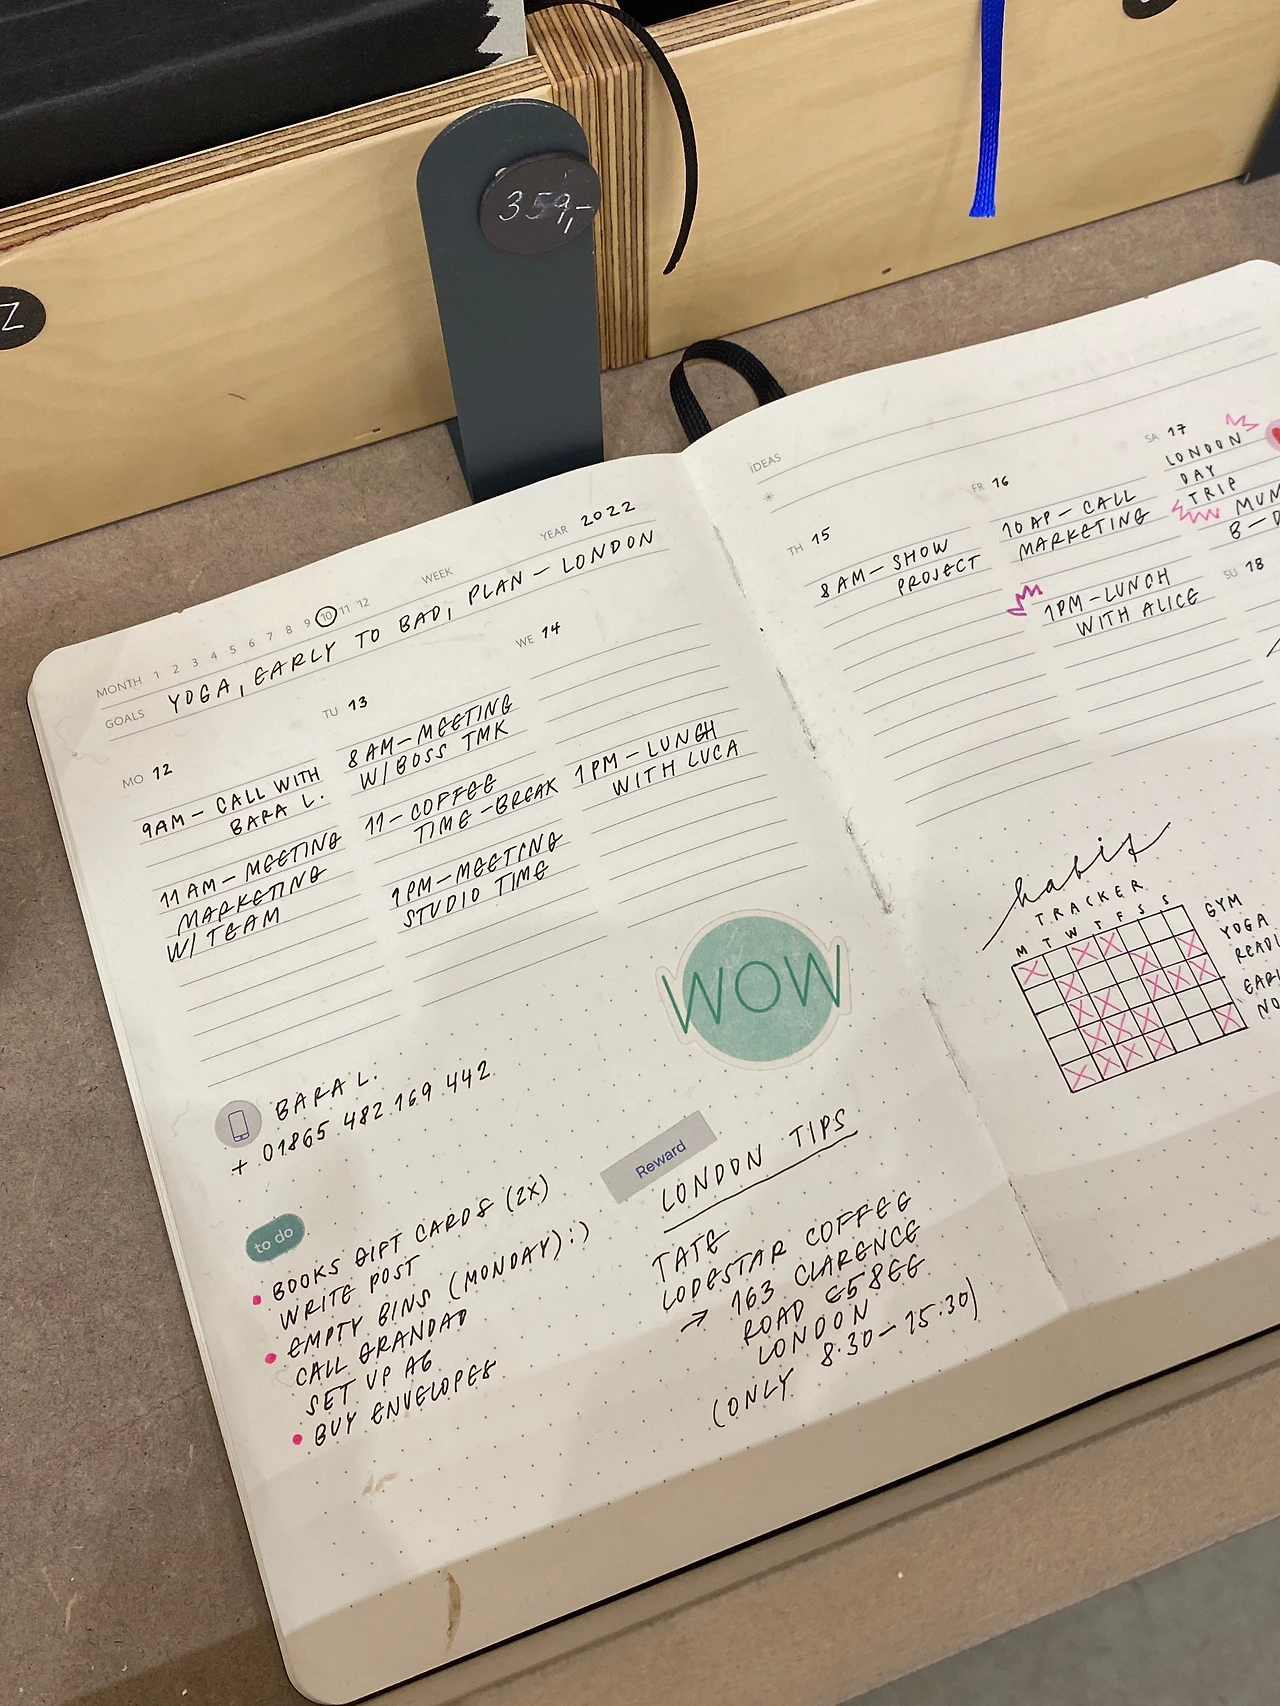 359,-
Z
MONTH 1 2 3 4 5 6 7 8 9 10 11 12 WEEK YEAR 2022
GOALS YOGA, EARLY TO BAD, PLAN - LONDON
MO 12
9AM - CALL WITH
BARA L.
11 AM - MEETING
MARKETING
W/ TEAM
TU 13
8 AM - MEETING
W/ BOSS TMK
11 - COFFEE
TIME - BREAK
1PM - MEETING
STUDIO TIME
WE 14
1PM - LUNCH
WITH LUCA
WOW
BARA L.
+ 01865 482 169 442
to do
BOOKS GIFT CARDS (2X)
WRITE POST
EMPTY BINS (MONDAY) :)
CALL GRANDAD
SET UP AG
BUY ENVELOPES
Reward
LONDON TIPS
TATE
LODESTAR COFFEE
→ 163 CLARENCE
ROAD E58EG
LONDON
(ONLY 8:30 - 15:30)
IDEAS
TH 15
8 AM - SHOW
PROJECT
FR 16
10 AP - CALL
MARKETING
1PM - LUNCH
WITH ALICE
SA 17
LONDON
DAY
TRIP
MUM
8 - D
SU 18
habit
TRACKER
M T W T F S S
GYM
YOGA
READI
EARL
NO